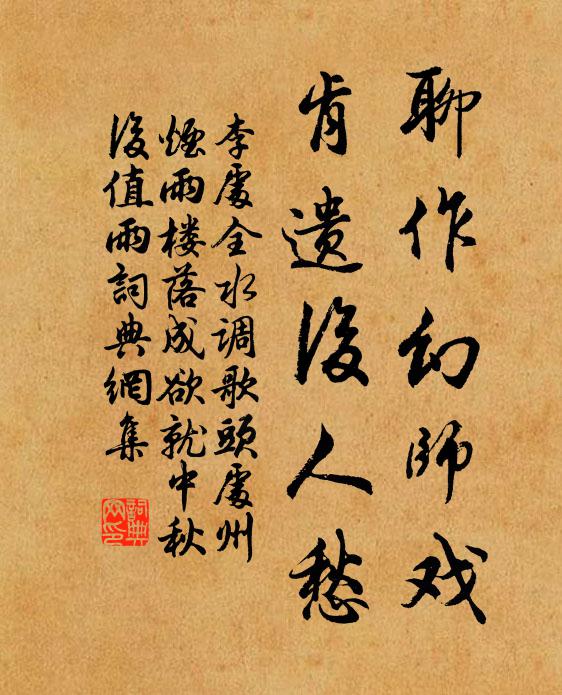 聊作幻師戏
肯遗後人愁
李處全水调歌頭處州
烟雨楼落成欲就中秋
後值雨詞典網集
詞典
网印